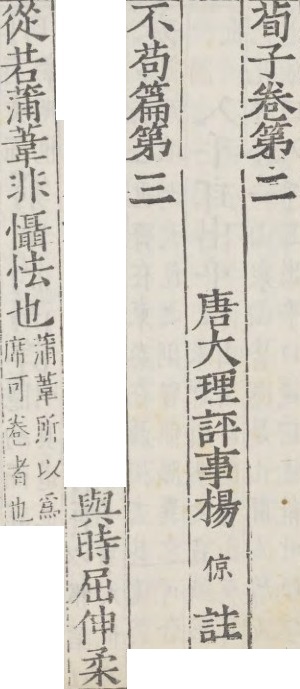 荀子卷第二
唐大理評事楊倞註
不苟篇第三
與時屈伸柔
從若蒲葦非懾怯也蒲葦所以爲
席可卷者也